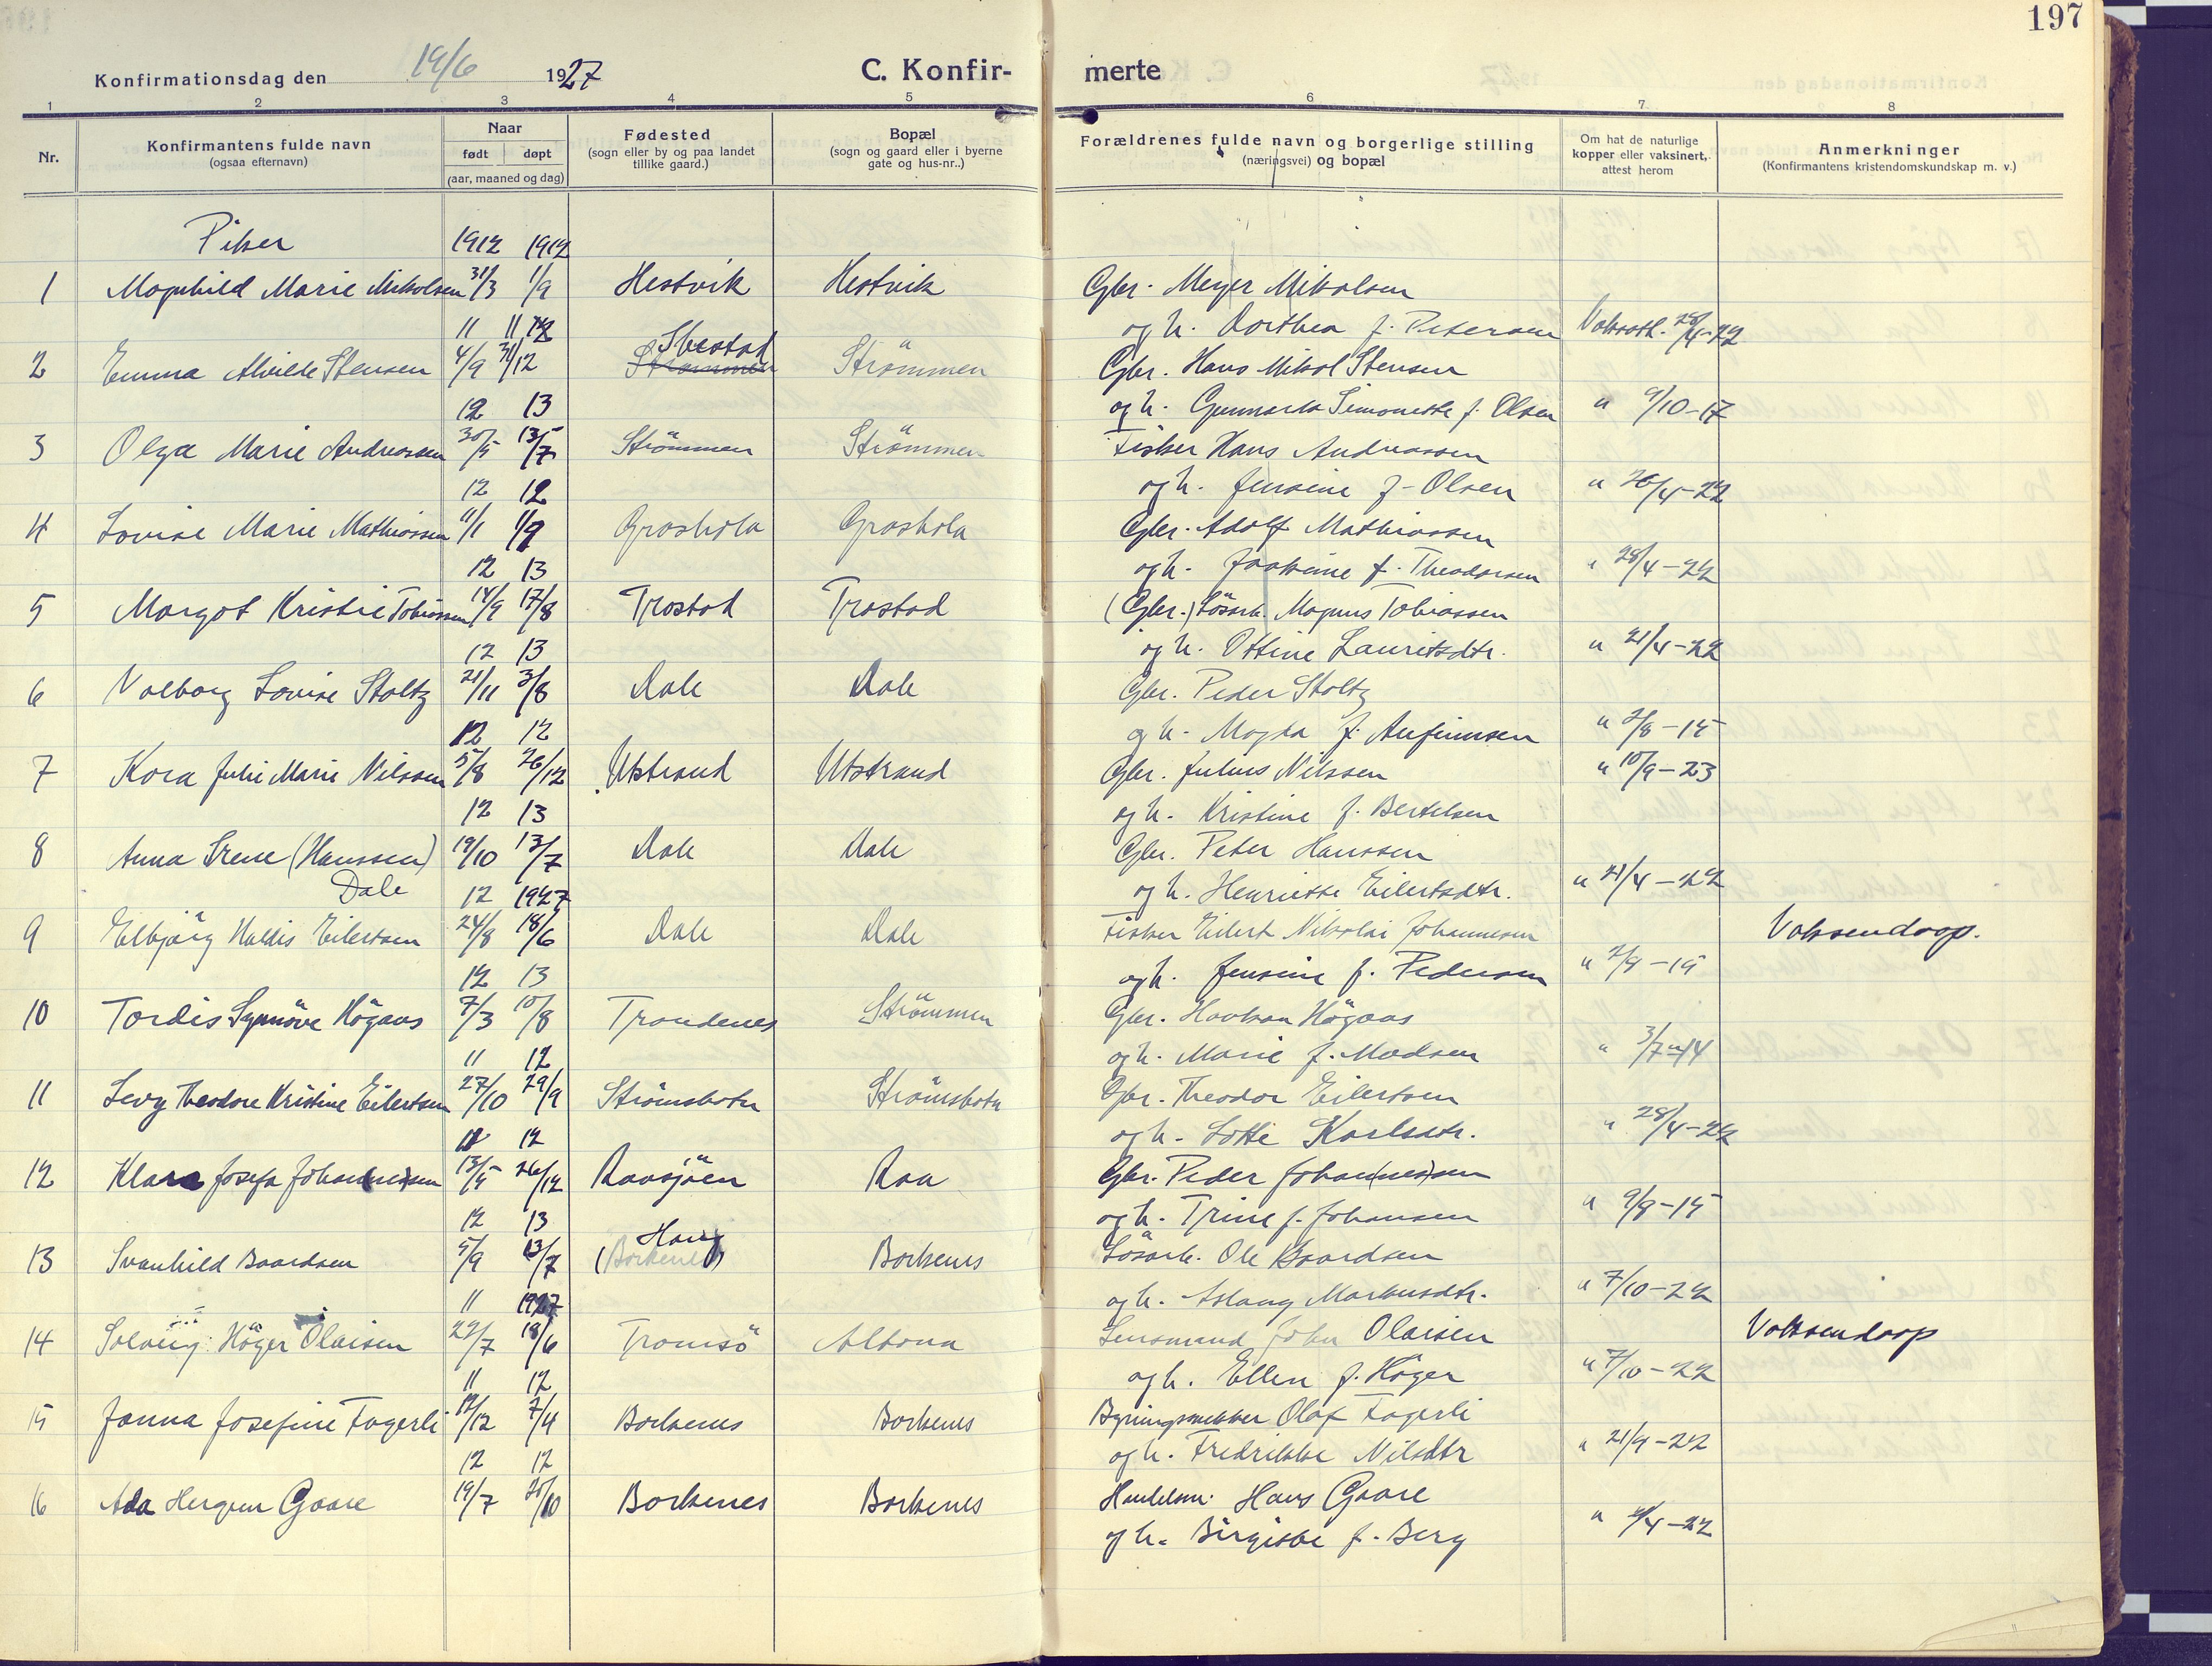 197
Konfirmationsdag den 19/6 1927
C. Konfir- merte
1 2 3 4 5 6 7 8
Nr.
Konfirmantens fulde navn
(ogsaa efternavn)
Naar
født døpt
(aar, maaned og dag)
Fødested
(sogn eller by og paa landet
tillike gaard.)
Bopæl
(sogn og gaard eller i byerne
gate og hus-nr..)
Forældrenes fulde navn og borgerlige stilling
(næringsvei) og bopæl
Om hat de naturlige
kopper eller vaksinert,
attest herom
Anmerkninger
(Konfirmantens kristendomskundskap m. v.)
Piker 1912 1912
1 Magnhild Marie Mikolsen 31/3 1/9 Hestvik Hestvik Gbr. Meyer Mikalsen
11 11 og h. Dorthea f. Petersen Vaksatt. 28/4-22
2 Emma Alvilde Stensen 4/9 31/12 Ibestad Strømmen Strömmen Gbr. Hans Mikal Stensen
12 13 og h. Gunnarda Simonette f. Olsen " 9/10-17
3 Olga Marie Andreassen 30/5 13/7 Strömmen Strömmen Fisker Hans Andreassen
12 12 og h. Jensine f. Olsen " 26/4-22
4 Lovise Marie Mathiassen 11/1 1/9 Grashola Grashola Gbr. Adolf Mathiassen
12 13 og h. Joakime f. Theodorsen " 28/4-22
5 Margot Kristie Tobiassen 14/9 17/8 Trastad Trastad (Gbr.) Lösarb. Magnus Tobiassen
12 13 og h. Ottine Lauritsdtr. " 21/4-22
6 Valborg Lovise Stoltz 21/11 3/8 Dale Dale Gbr. Peder Stoltz
12 12 og h. Magda f. Anfinnsen " 2/8-15
7 Kora Julie Marie Nilssen 5/8 26/12 Utstrand Utstrand Gbr. Julius Nilssen " 10/9-23
12 13 og h. Kristine f. Bertelsen
8 Anna Irene (Hanssen) 19/10 13/7 Dale Dale Gbr. Peter Hanssen
Dale 12 1927 og h. Henriette Eilertsdtr. " 21/4-22
9 Elbjörg Haldis Eilertsen 24/8 18/6 Dale Dale Fisker Eilert Nikolai Johannesen Voksendaap.
12 13 og h. Jensine f. Pedersen " 2/9-15
10 Tordis Synnöve Högaas 7/3 10/8 Trondenes Strömmen Gbr. Haakon Högaas
11 12 og h. Marie f. Madsen " 3/7-14
11 Levy Theodore Kristine Eilertsen 27/10 29/9 Strömsbotn Strömsbotn Gbr. Theodor Eilertsen
12 og h. Lotti Karlsdtr. " 28/4-22
12 Klara Josefa Johan(ne)sen 13/5 26/12 Raasjöen Raa Gbr. Peder Johan(nes)sen
12 13 og h. Trine f. Johansen " 9/8-15
13 Svanhild Baardsen 5/9 13/7 (Borkenes) Harj Borkenes Lösarb. Ole Baardsen
11 1927 og h. Aslaug Markusdtr. " 7/10-22
14 Solveig Höger Olaisen 22/7 18/6 Tromsö Altona Lensmand John Olaisen Voksendaap
11 12 og h. Ellen f. Höger " 7/10-22
15 Janna Josefine Fagerli 12/12 7/4 Borkenes Borkenes Bygningssnekker Olaf Fagerli
12 12 og h. Fredrikke Nilsdtr " 21/9-22
16 Ada Hergun Gaare 19/7 20/10 Borkenes Borkenes Handelsm. Hans Gaare
og h. Birgitte f. Berg